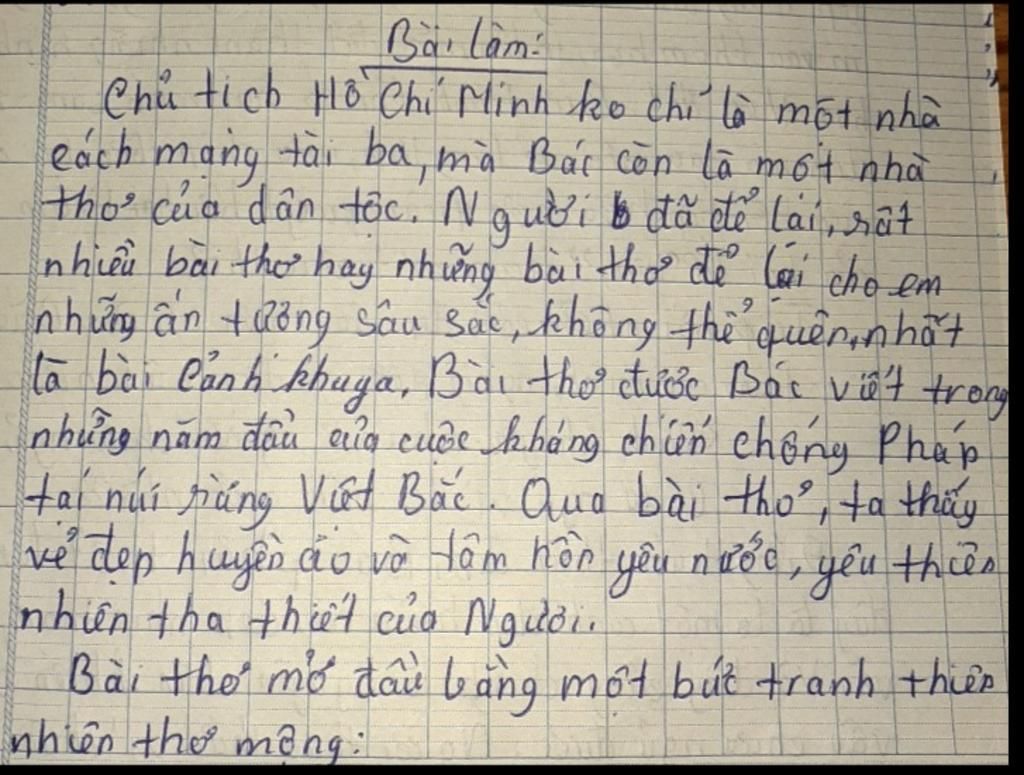 Bài làm:
Chủ tịch Hồ Chí Minh ko chỉ là một nhà
cách mạng tài ba, mà Bác còn là một nhà
thơ của dân tộc. Người đã để lại, rất
nhiều bài thơ hay những bài thơ để lại cho em
những ấn tượng sâu sắc, không thể quên, nhất
là bài Cảnh khuya. Bài thơ được Bác viết trong
những năm đầu của cuộc kháng chiến chống Pháp
tại núi rừng Việt Bắc. Qua bài thơ, ta thấy
vẻ đẹp huyền ảo và tâm hồn yêu nước, yêu thiên
nhiên tha thiết của Người.
Bài thơ mở đầu bằng một bức tranh thiên
nhiên thơ mộng: